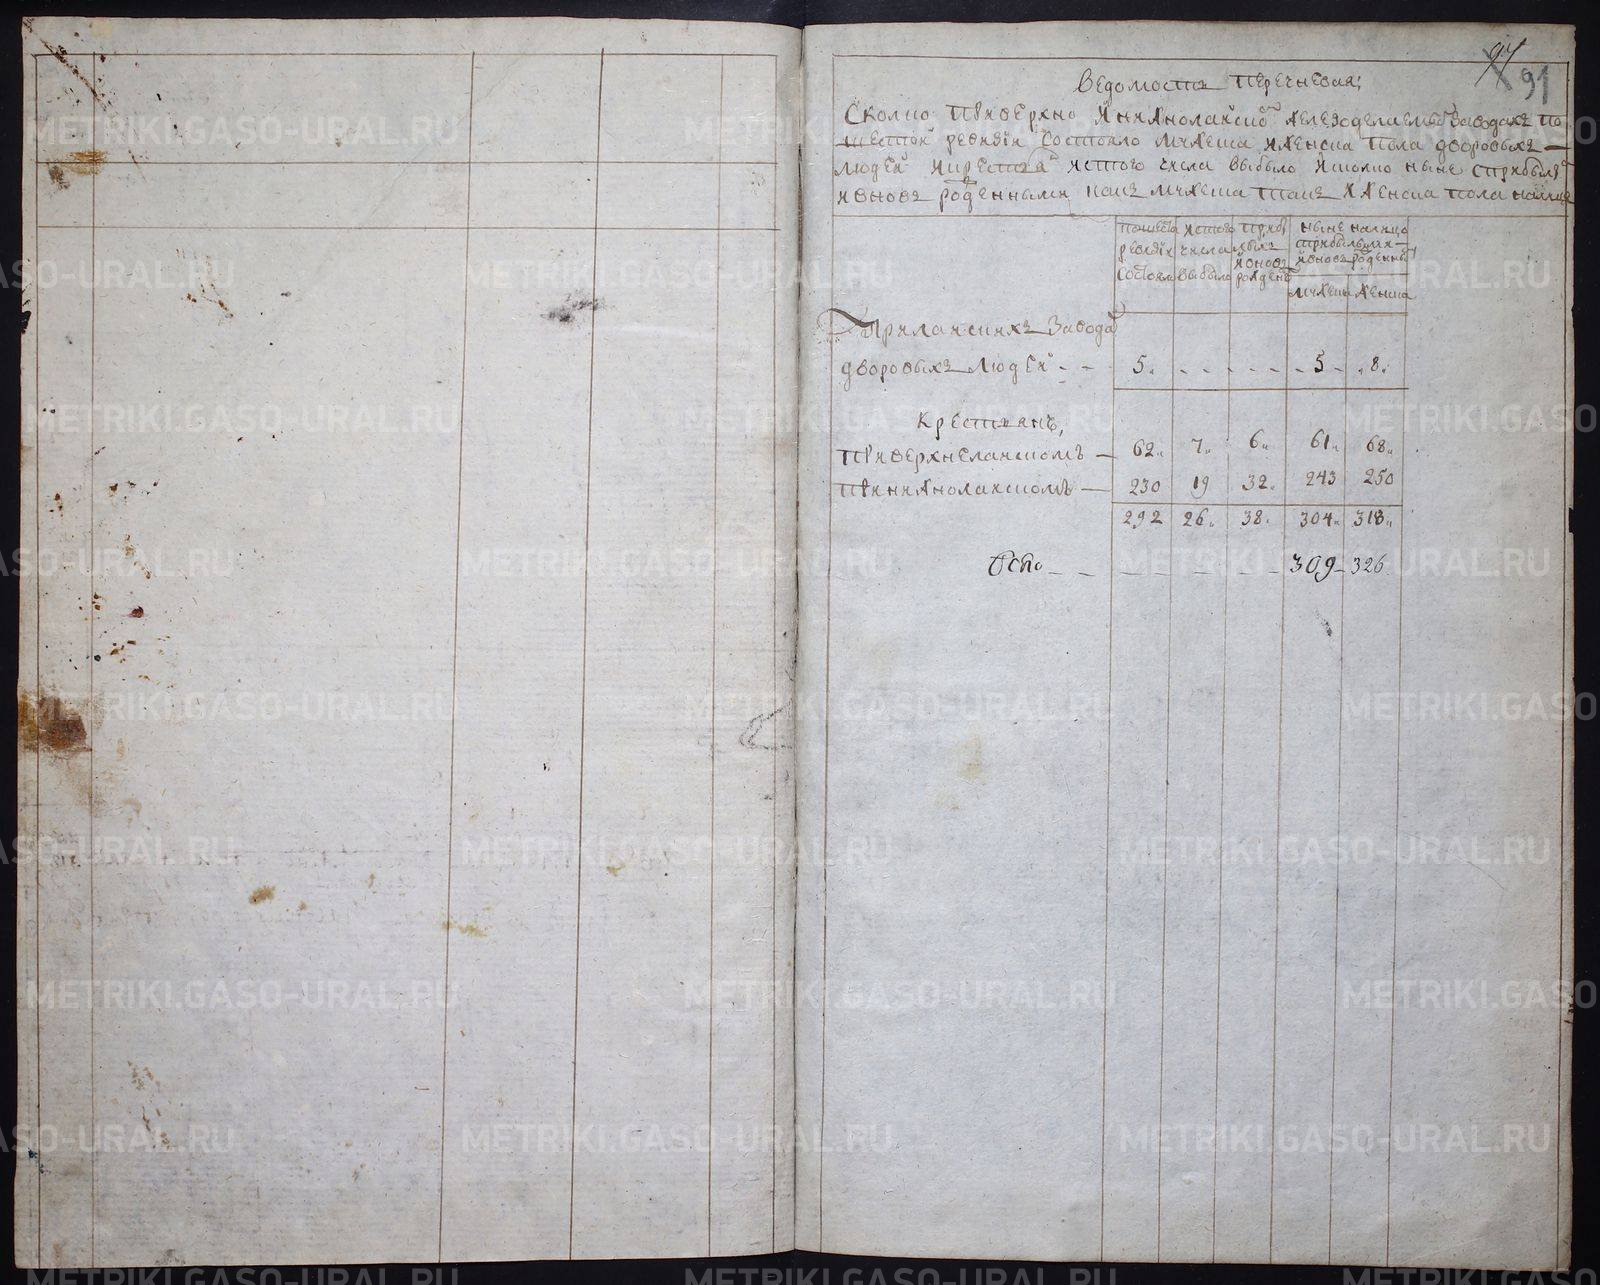 91
Ведомость перечневая;
Сколко при верхно и нижнолайско железоделаемы заводахъ по
шестой ревизiи состояло мужеска и женска пола дворовыхъ
людей и крестья истого числа выбыло и толико ныне с прибыл
и вновь роденными какъ мужеска такъ и женска пола налицо
по шесто ревизiи состояло
истого числа выбыло
прибылыхъ и вновь рожден
ныне налицо с прибылыми и вновь роденны
мужеска женска
При лайскихъ завода
дворовыхъ людей - - 5. - - - - - 5 - 8.
Крестьянъ,
При верхнелайскомъ — 62 7 6 61 68
При нижнолайскомъ — 230 19 32 243 250
292 26 38 304 318
Всего - - - - - - - 309 - 326
METRIKI.GASO-URAL.RU